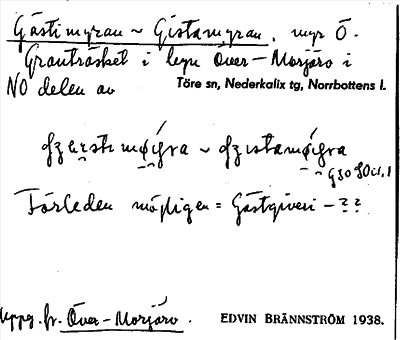 Gästimyran ~ Gistamyran, myr Ö.
Granträsket i byn Över-Morjärv i
NO delen av Töre sn, Nederkalix tg, Norrbottens l.
Förleden möjligen = Gästgiveri - ? ?
Uppg. fr. Över-Morjärv. EDVIN BRÄNNSTRÖM 1938.